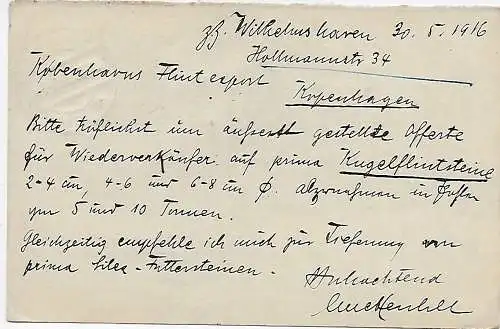 zZ. Wilhelmshaven 30. 5. 1916
Hollmannstr 34
Københavns Flint export
Kopenhagen
Bitte höflichst um äusserst gestellte Offerte
für Wiederverkäufer auf prima Kugelflintsteine
2-4 cm, 4-6 und 6-8 cm Ø. abzunehmen in
von 5 und 10 Tonnen.
Gleichzeitig empfehle ich mich zur Lieferung von
prima Silex-Futtersteinen.
Hochachtend